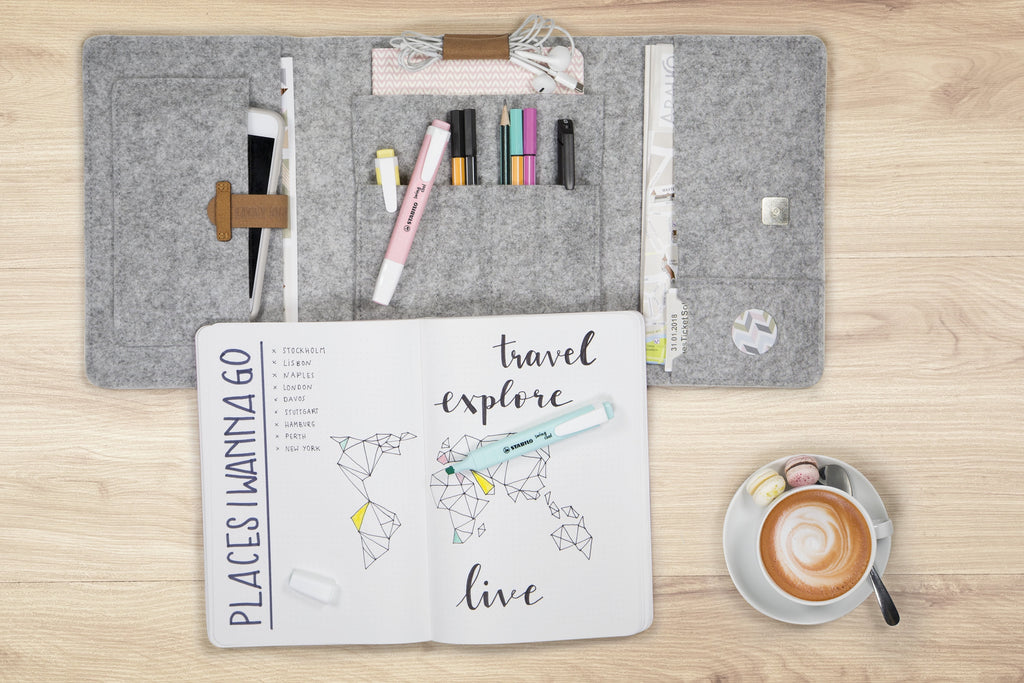 ARAH@
STABILO swing cool
31.01.2018
nesTicketSo
PLACES I WANNA GO
x STOCKHOLM
x LISBON
x NAPLES
x LONDON
x DAVOS
x STUTTGART
x HAMBURG
x PERTH
> NEW YORK
travel
explore
STABILO swing cool
live